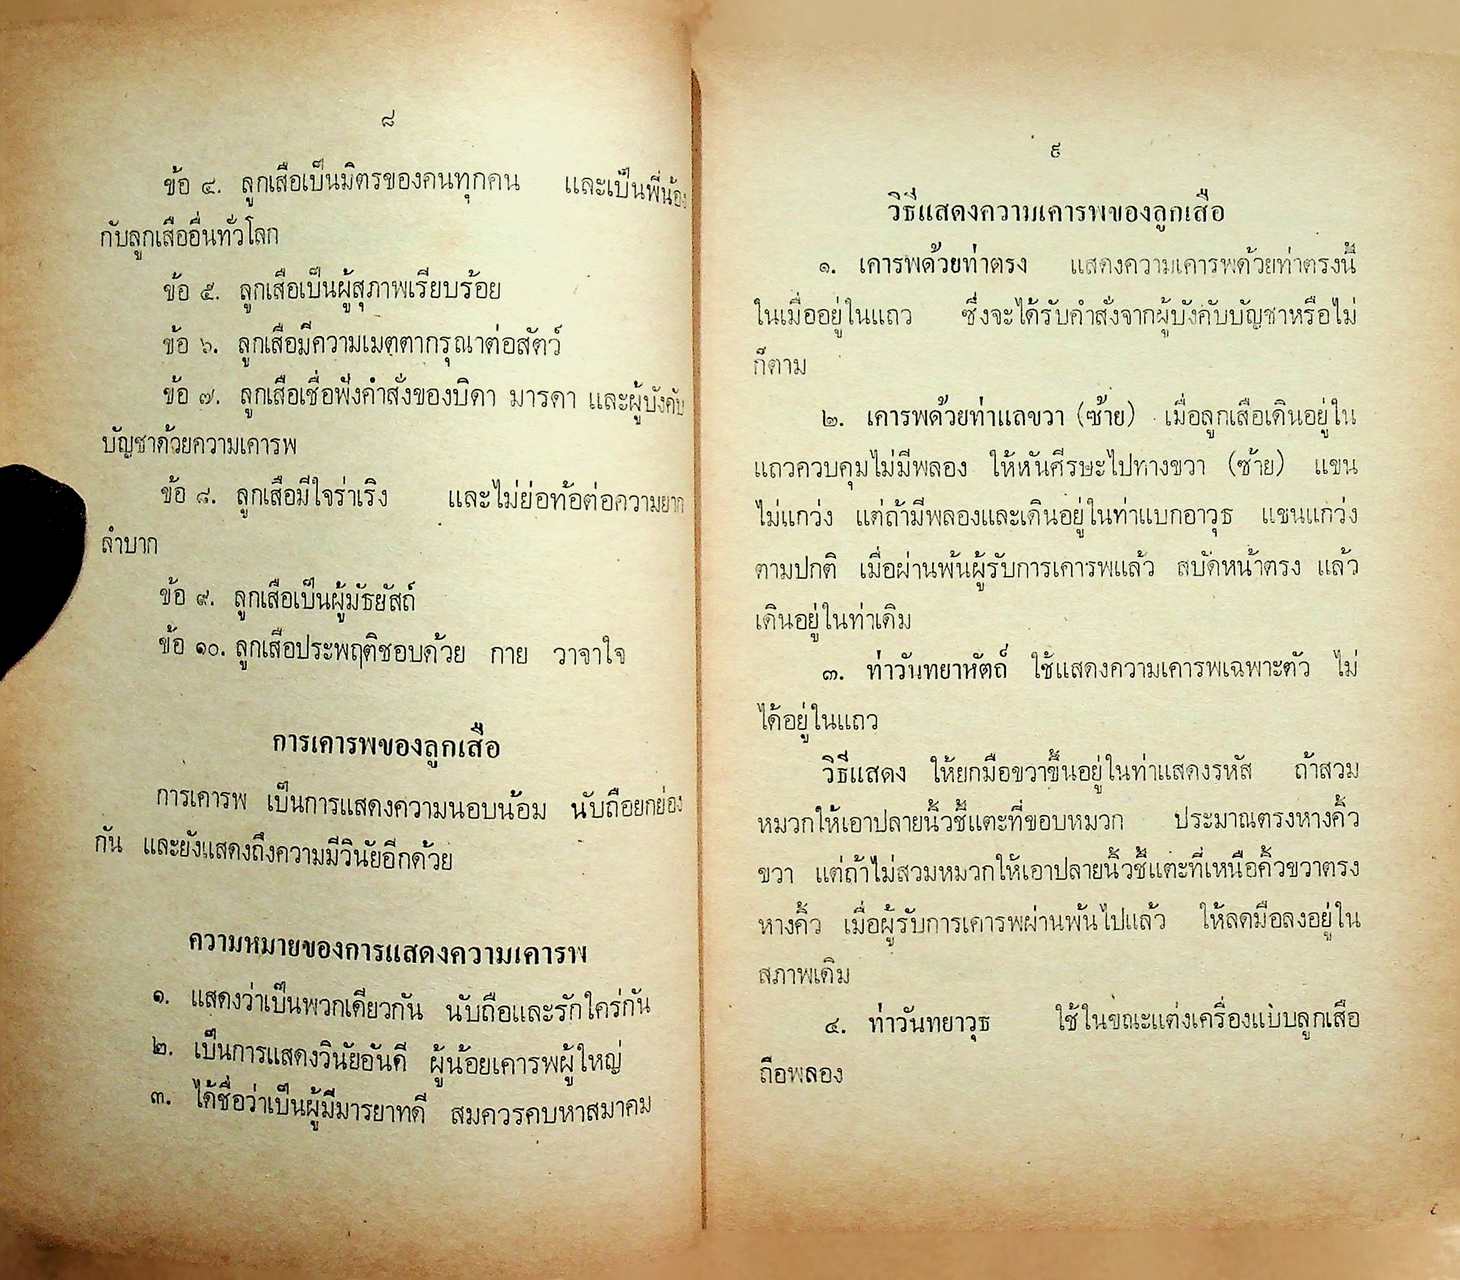 ๘
ข้อ ๔. ลูกเสือเป็นมิตรของคนทุกคน และเป็นพี่น้อง
กับลูกเสืออื่นทั่วโลก
ข้อ ๕. ลูกเสือเป็นผู้สุภาพเรียบร้อย
ข้อ ๖. ลูกเสือมีความเมตตากรุณาต่อสัตว์
ข้อ ๗. ลูกเสือเชื่อฟังคำสั่งของบิดา มารดา และผู้บังคับ
บัญชาด้วยความเคารพ
ข้อ ๘. ลูกเสือมีใจร่าเริง และไม่ย่อท้อต่อความยาก
ลำบาก
ข้อ ๙. ลูกเสือเป็นผู้มัธยัสถ์
ข้อ ๑๐. ลูกเสือประพฤติชอบด้วย กาย วาจาใจ
การเคารพของลูกเสือ
การเคารพ เป็นการแสดงความนอบน้อม นับถือยกย่อง
กัน และยังแสดงถึงความมีวินัยอีกด้วย
ความหมายของการแสดงความเคารพ
๑. แสดงว่าเป็นพวกเดียวกัน นับถือและรักใคร่กัน
๒. เป็นการแสดงวินัยอันดี ผู้น้อยเคารพผู้ใหญ่
๓. ได้ชื่อว่าเป็นผู้มีมารยาทดี สมควรคบหาสมาคม
๙
วิธีแสดงความเคารพของลูกเสือ
๑. เคารพด้วยท่าตรง แสดงความเคารพด้วยท่าตรงนี้
ในเมื่ออยู่ในแถว ซึ่งจะได้รับคำสั่งจากผู้บังคับบัญชาหรือไม่
ก็ตาม
๒. เคารพด้วยท่าแลขวา (ซ้าย) เมื่อลูกเสือเดินอยู่ใน
แถวควบคุมไม่มีพลอง ให้หันศีรษะไปทางขวา (ซ้าย) แขน
ไม่แกว่ง แต่ถ้ามีพลองและเดินอยู่ในท่าแบกอาวุธ แขนแกว่ง
ตามปกติ เมื่อผ่านพ้นผู้รับการเคารพแล้ว สบัดหน้าตรง แล้ว
เดินอยู่ในท่าเดิม
๓. ท่าวันทยาหัตถ์ ใช้แสดงความเคารพเฉพาะตัว ไม่
ได้อยู่ในแถว
วิธีแสดง ให้ยกมือขวาขึ้นอยู่ในท่าแสดงรหัส ถ้าสวม
หมวกให้เอาปลายนิ้วชี้แตะที่ขอบหมวก ประมาณตรงหางคิ้ว
ขวา แต่ถ้าไม่สวมหมวกให้เอาปลายนิ้วชี้แตะที่เหนือคิ้วขวาตรง
หางคิ้ว เมื่อผู้รับการเคารพผ่านพ้นไปแล้ว ให้ลดมือลงอยู่ใน
สภาพเดิม
๔. ท่าวันทยาวุธ ใช้ในขณะแต่งเครื่องแบบลูกเสือ
ถือพลอง